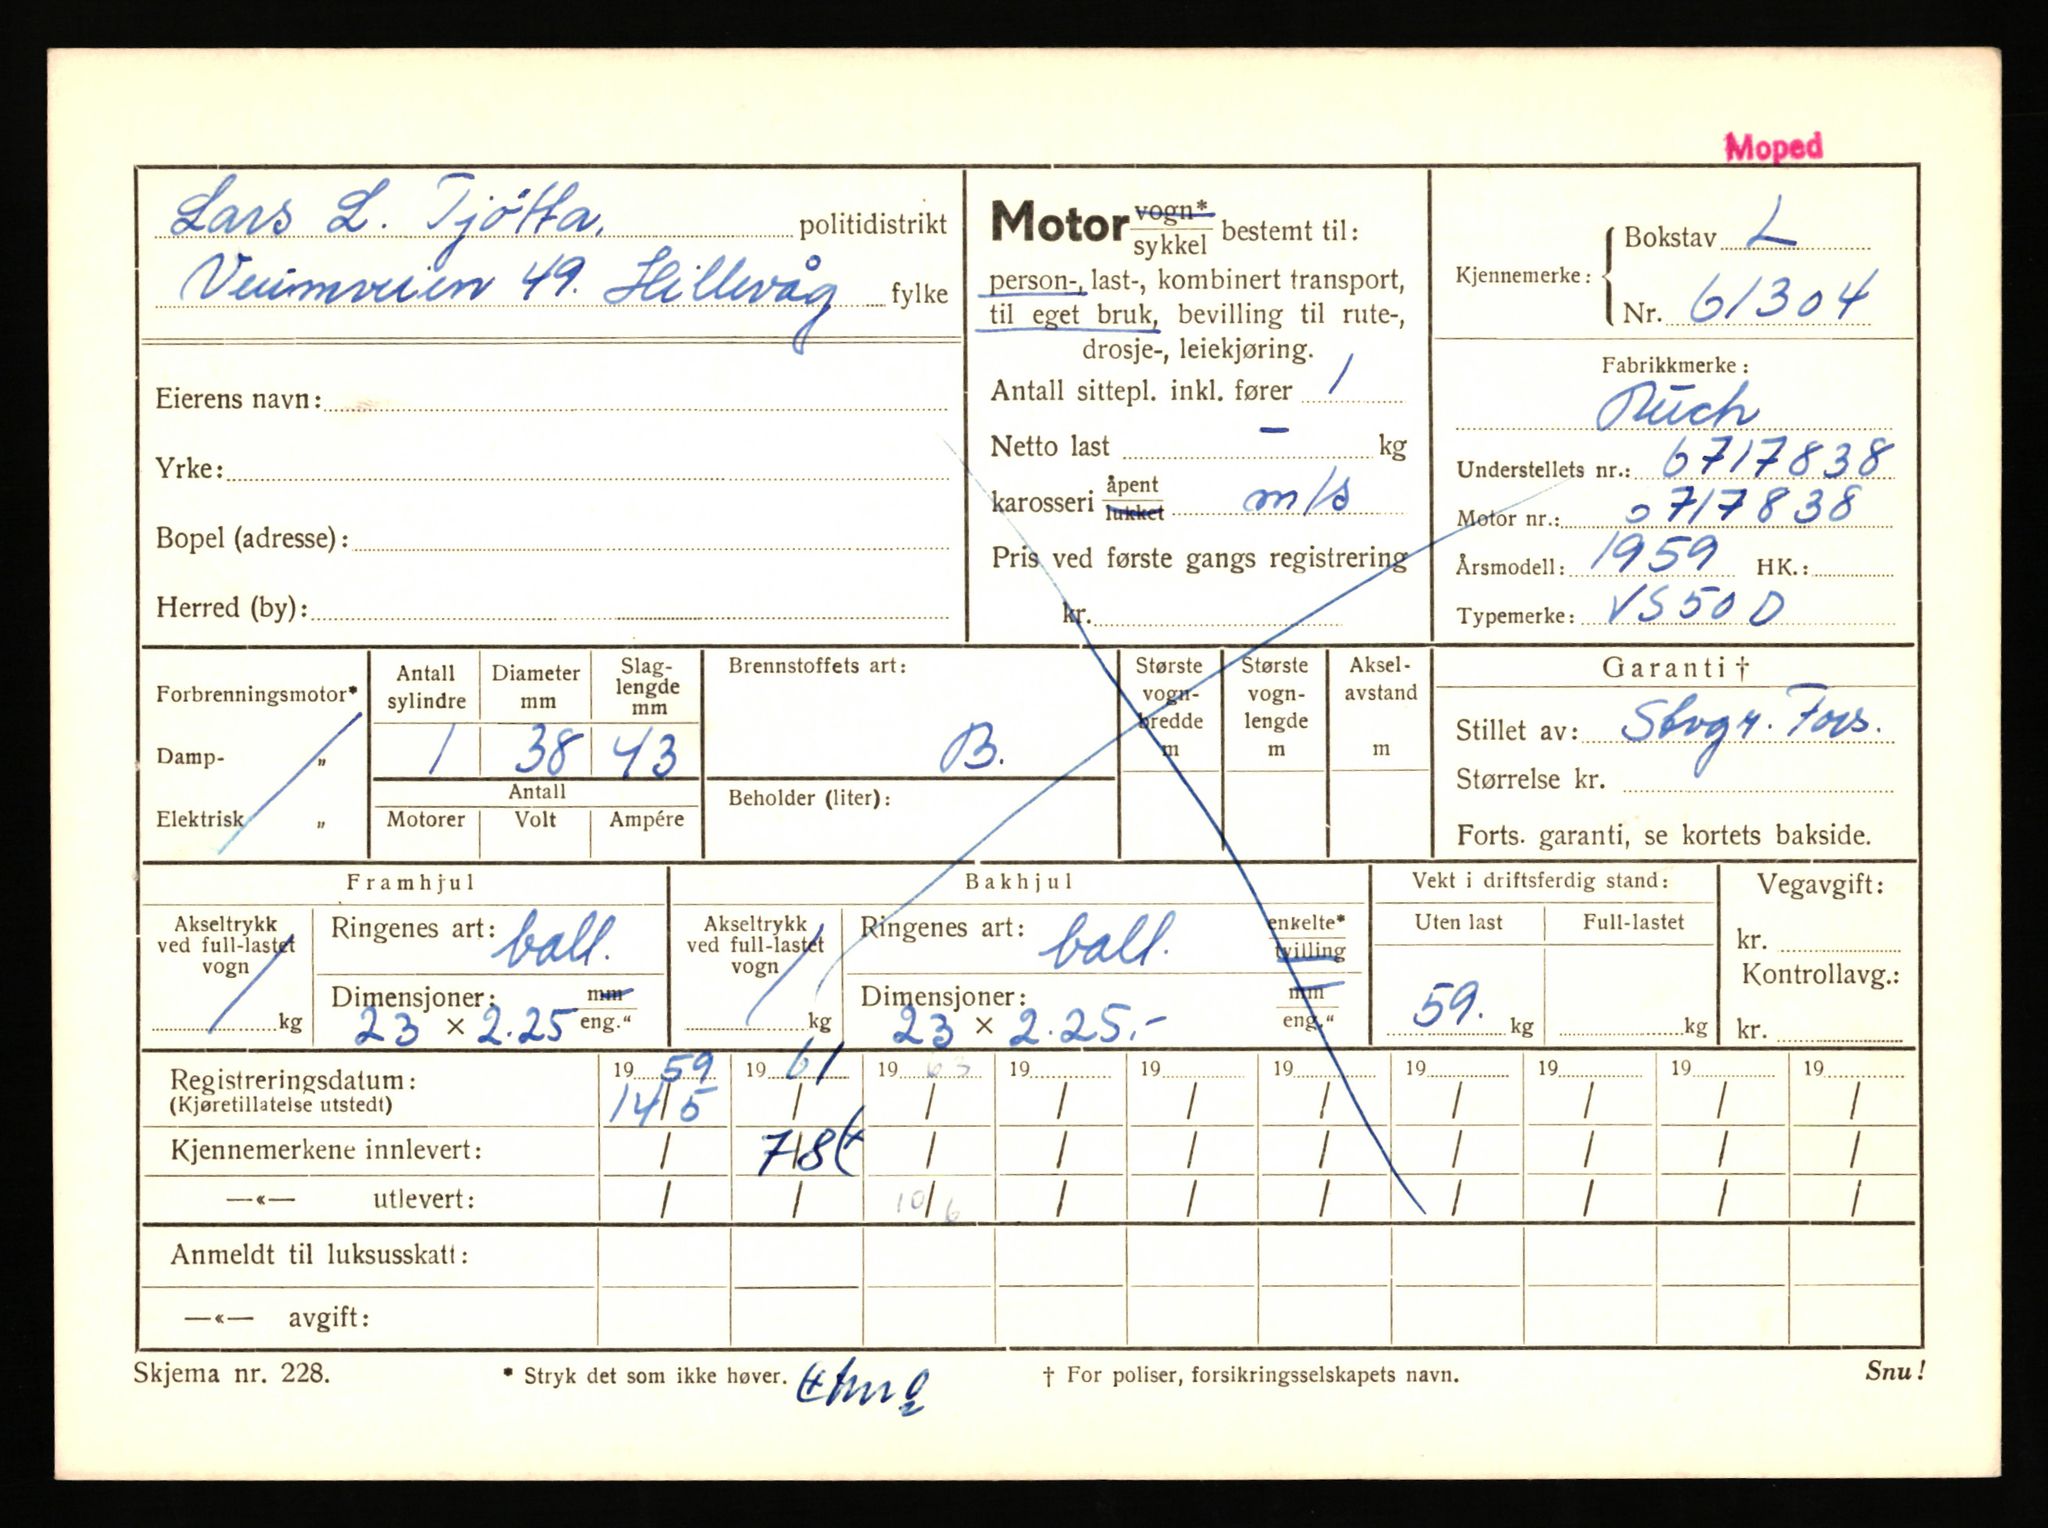 Moped
Lars L. Tjøtta, politidistrikt
49. Hillevåg fylke
Eierens navn:
Yrke:
Bopel (adresse):
Herred (by):
Motor vogn* sykkel bestemt til:
person-, last-, kombinert transport,
til eget bruk, bevilling til rute-,
drosje-, leiekjøring.
Antall sittepl. inkl. fører 1
Netto last – kg
karosseri åpent lukket m/s
Pris ved første gangs registrering
kr.
Kjennemerke: Bokstav L
Nr. 61304
Fabrikkmerke:
Puch
Understellets nr.: 6717838
Motor nr.: 0717838
Årsmodell: 1959 HK.:
Typemerke: VS 50 D
Forbrenningsmotor*
Damp- „
Elektrisk „
Antall sylindre
Diameter mm
Slag-lengde mm
1 38 43
Antall
Motorer Volt Ampére
Brennstoffets art:
B.
Beholder (liter):
Største vogn-bredde m
Største vogn-lengde m
Aksel-avstand m
Garanti †
Stillet av: Stvgr. Fors.
Størrelse kr.
Forts. garanti, se kortets bakside.
Framhjul
Akseltrykk ved full-lastet vogn
kg
Ringenes art: ball.
Dimensjoner: mm eng."
23 × 2.25
Bakhjul
Akseltrykk ved full-lastet vogn
kg
Ringenes art: ball. enkelte* tvilling
Dimensjoner: mm eng."
23 × 2.25.-
Vekt i driftsferdig stand:
Uten last Full-lastet
59. kg kg
Vegavgift:
kr.
Kontrollavg.:
kr.
Registreringsdatum: 19 59 19 61 19 63 19 19 19 19 19 19 19
(Kjøretillatelse utstedt) 14/5 / / / / / / / / /
Kjennemerkene innlevert: / 7/8 / / / / / / / /
—«— utlevert: / / 10/6 / / / / / / /
Anmeldt til luksusskatt:
—«— avgift:
Skjema nr. 228.
* Stryk det som ikke høver.
† For poliser, forsikringsselskapets navn.
Snu!